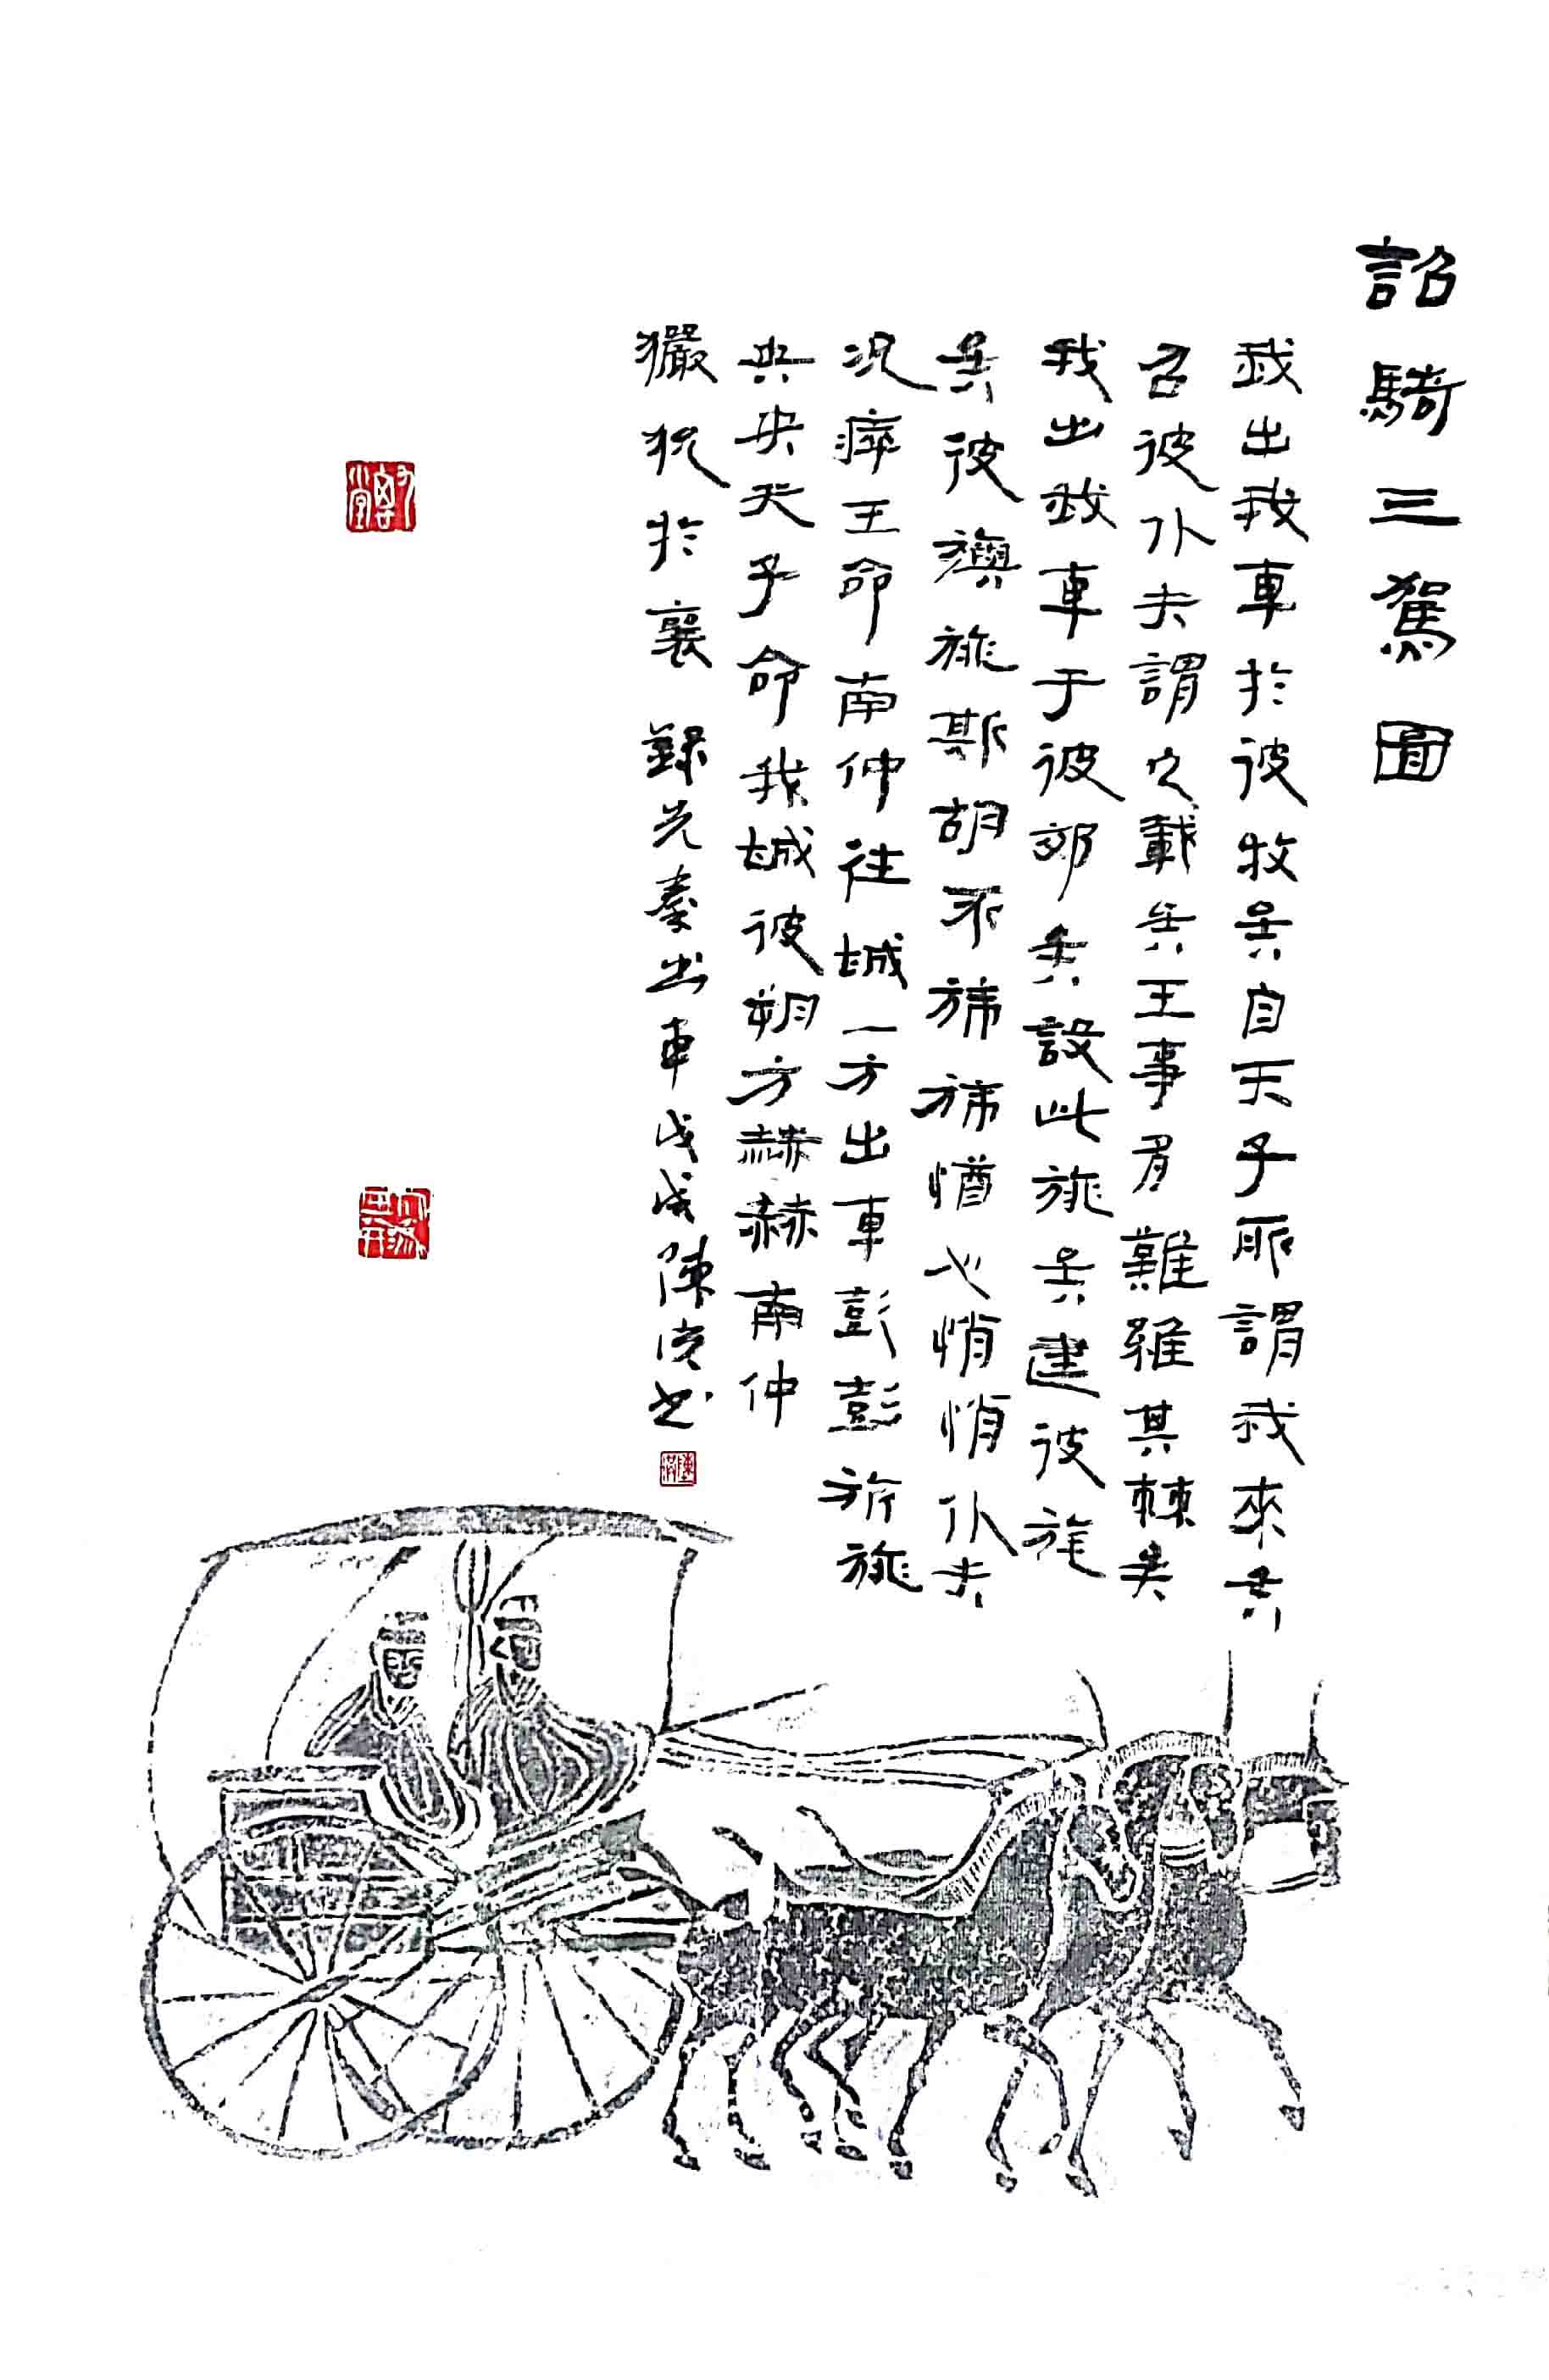 詔騎三駕圖
我出我車於彼牧矣自天子所謂我來矣
召彼仆夫謂之載矣王事多難維其棘矣
我出我車于彼郊矣設此旐矣建彼旄
矣彼旟旐斯胡不旆旆心悄悄仆夫
况瘁王命南仲往城一方出車彭彭旂旐
央央天子命我城彼朔方赫赫南仲
玁狁於襄 錄先秦出車戊戌陳书